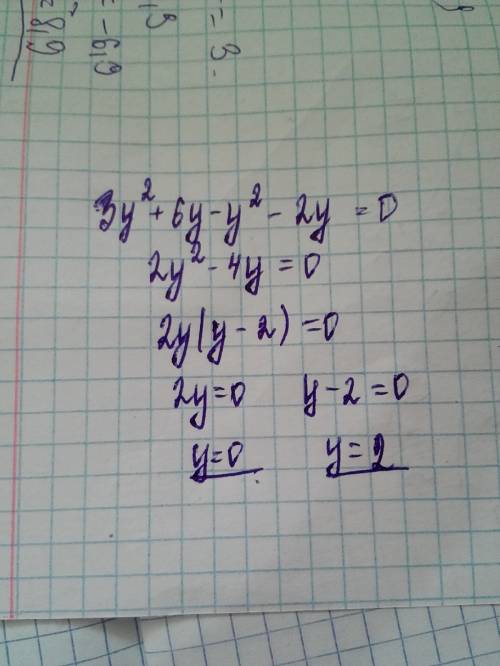 3y² + 6y - y² - 2y = 0
2y² - 4y = 0
2y(y - 2) = 0
2y = 0 y - 2 = 0
y = 0 y = 2
= 3.
= -6,9